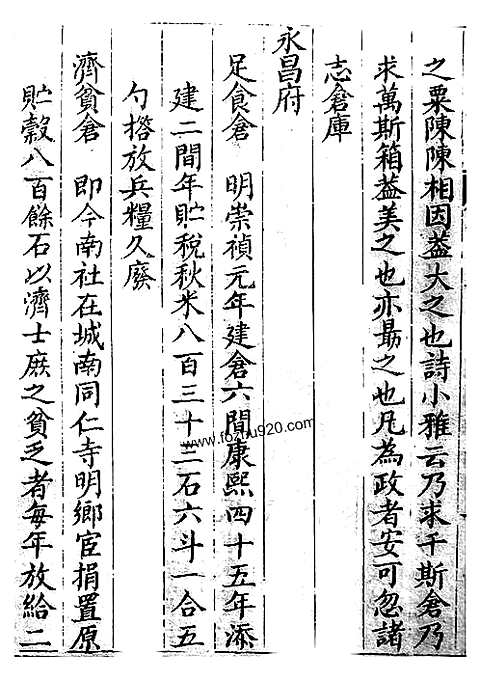 之粟陳陳相因葢大之也詩小雅云乃求千斯倉乃
求萬斯箱葢美之也亦勗之也凡為政者安可忽諸
志倉庫
永昌府
足食倉 明崇禎元年建倉六間康熙四十五年添
建二間年貯稅秋米八百三十三石六斗一合五
勺撘放兵糧久廢
濟貧倉 即今南社在城南同仁寺明鄉宦捐置原
貯穀八百餘石以濟士庶之貧乏者每年放給二
www.fozhu920.com